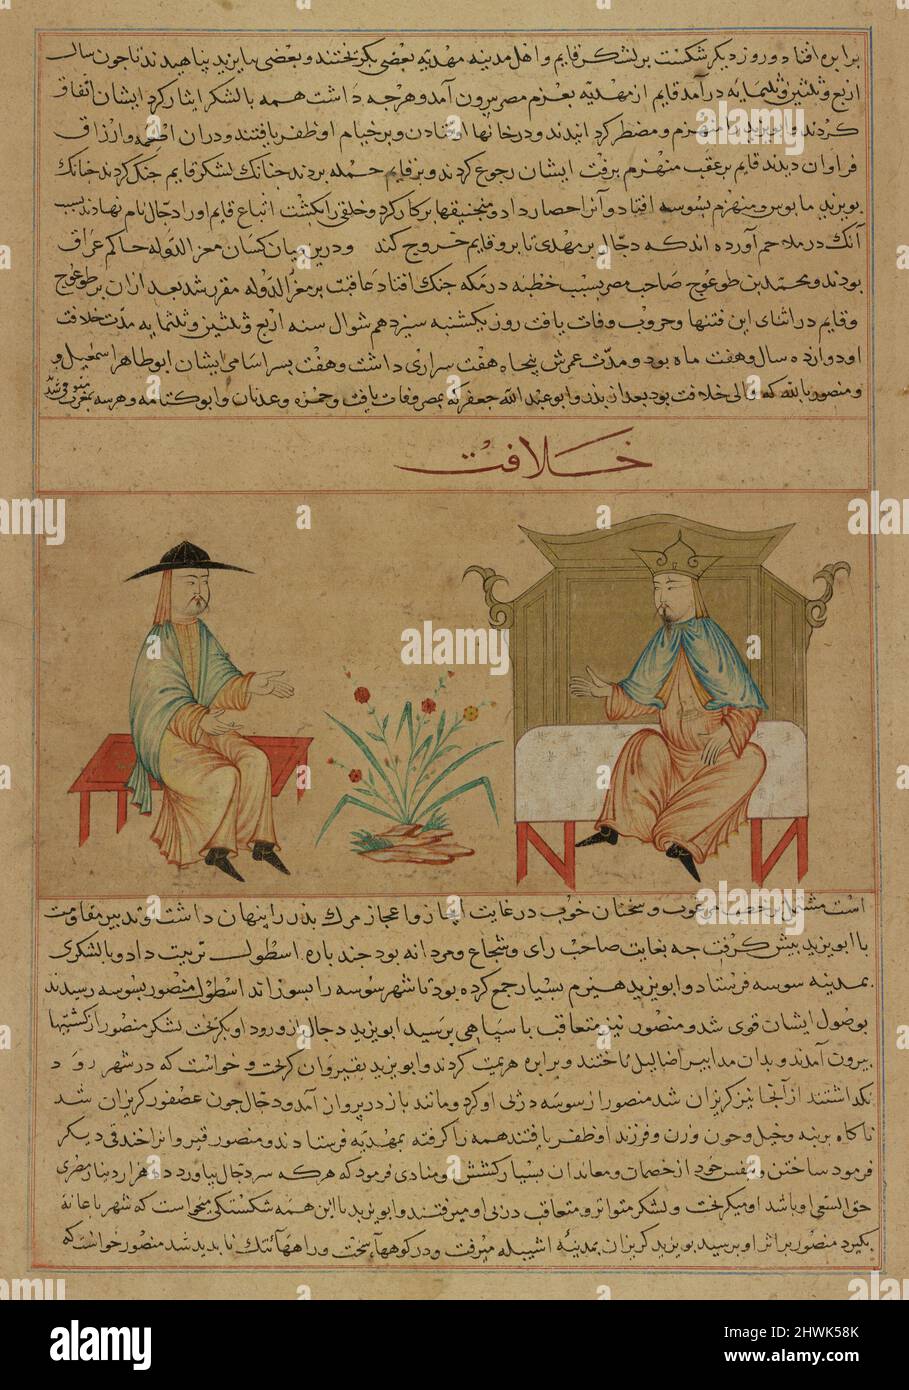 برابره افتاد و روز دیگر شکست بر لشکر قایم و اهل مدینه مهدیه بعضی بگریختند و بعضی بابایزید پناهیدند تا چون سال
اربع و ثلثین و ثلثمایه درآمد قایم از مهدیه بعزم مصر بیرون آمد و هرچه داشت همه با لشکر ایثار کرد ایشان اتفاق
کردند و ابویزید را منهزم و مضطر کردانیدند و در خانها اوفتادن و بر خیام او ظفر یافتند و دران اطعمه و ارزاق
فراوان دیدند قایم بر عقب منهزم برفت ایشان رجوع کردند و بر قایم حمله بردند چنانک لشکر قایم جنک کردند چنانک
بویزید مایوس و منهزم بسوسه افتاد و آنرا حصار داد و منجنیقها بر کار کرد و خلقی را بکشت اتباع قایم او را دجال نام نهادند بسبب
آنک در ملاحم آورده اند که دجال بر مهدی تا بر و قایم خروج کند و درین میان کسان معز الدوله حاکم عراق
بودند و محمد بن طوغوج صاحب مصر بسبب خطبه در مکه جنک افتاد عاقبت بر معز الدوله مقرر شد بعد ازان بر طوغوج
و قایم در اثنای این فتنها و حروب وفات یافت روز یکشنبه سیزدهم شوال سنه اربع و ثلثین و ثلثمایه مدت خلافت
او دوازده سال و هفت ماه بود و مدت عمرش پنجاه هفت سراری داشت و هفت پسر اسامی ایشان ابوطاهر اسمعیل و
و منصور بالله که والی خلافت بود بعد از پدر و ابو عبد الله جعفر که بمصر وفات یافت و حمزه و عدنان و ابو کتامه و هر سه بمغرب متوفی شد
خلافت
است مشتمل بر خصب مرعوب و سخنان خوب در غایت ایجاز و اعجاز مرک پدر را پنهان داشت و تدبیر مقاومت
با ابویزید پیش کرفت چه بغایت صاحب رای و شجاع و مردانه بود چند باره اسطول تربیت داد و با لشکری
بمدینه سوسه فرستاد و ابویزید هیزم بسیار جمع کرده بود تا شهر سوسه را بسوزاند اسطول منصور بسوسه رسیدند
بوصول ایشان قوی شد و منصور نیز متعاقب با سپاهی برسید ابویزید دجال از ورود او بکریخت لشکر منصور از کشتیها
بیرون آمدند و بدان مدابیر اضالیل تاختند و برابره هزیمت کردند و ابویزید بقیروان کریخت و خواست که در شهر رود
نکذاشتند از آنجا نیز کریزان شد منصور از سوسه در پی او کرد و مانند باز در پرواز آمد و دجال چون عصفور کریزان شد
ناکاه بر بنه و خیل و حون و زن و فرزند او ظفر یافتند همه را کرفته بمهدیه فرستادند و منصور قیروانرا خندقی دیکر
فرمود ساختن و بنفس خود از خصمان و معاندان بسیار کشتش و منادی فرمود که هرکه سر دجال بیاورد ده هزار دینار مصری
حق السعی او باشد او میکریخت و لشکر متواتر و متعاقب در پی او میرفتند و ابویزید با این همه شکستکی میخواست که شهر باغانه
بکیرد منصور بر اثر او برسید بویزید کریزان بمدینه اشبیله میرفت و در کوهها سخت و راهها تنک ناپدید شد منصور خواست که
alamy
Image ID: 2HWK58K
www.alamy.com